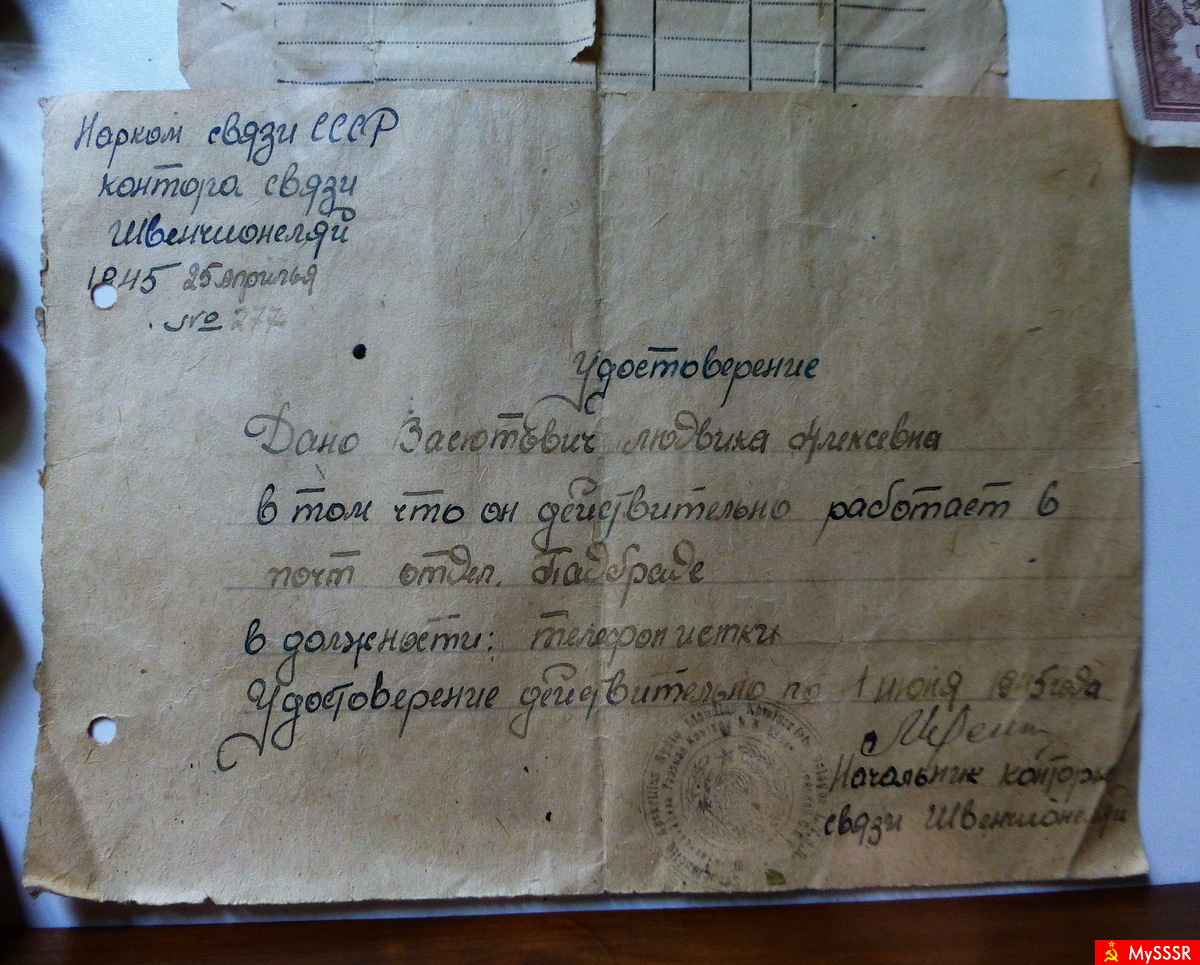 Нарком связи СССР
контора связи
Швенчионеляй
1945 25 Апрелья
№ 277
Удостоверение
Дано Засютович Людвика Алексевна
в том что он действительно работает в
почт отдел. Падбраде
в должности: телефонистки
Удостоверение действительно по 1 июня 1945 года
Начальник конторы
связи Швенчионеляй
MySSSR